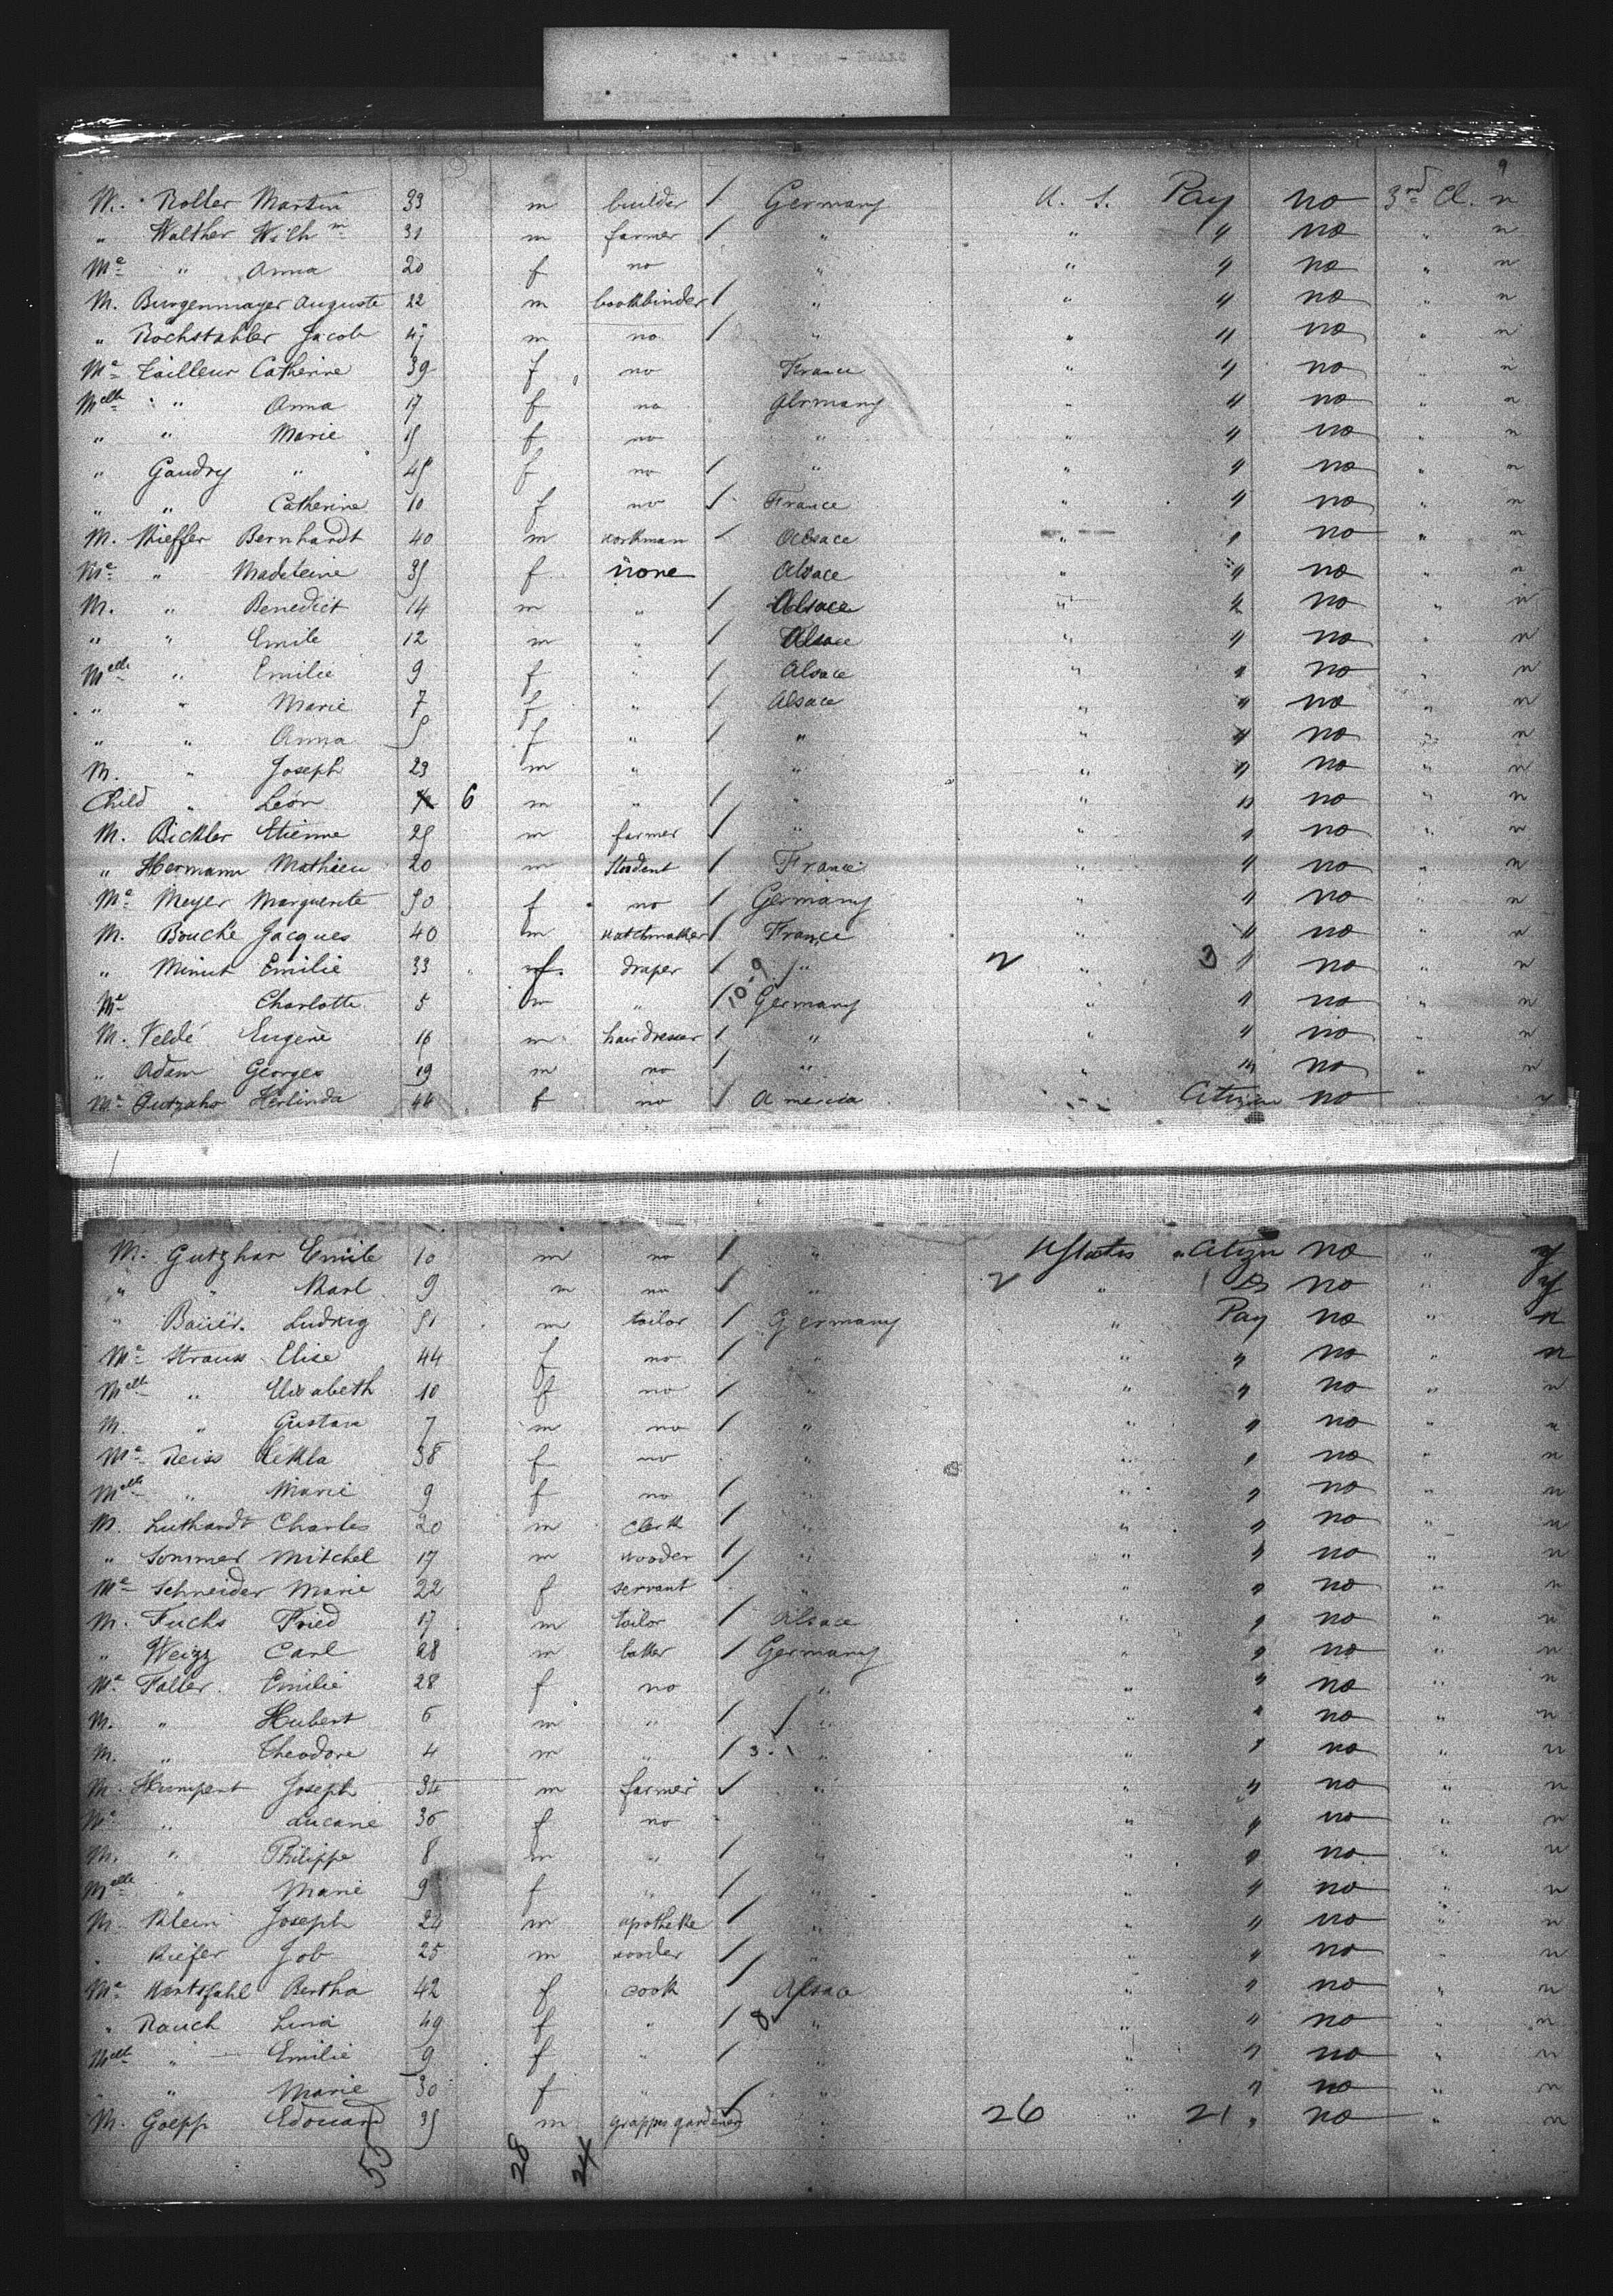 9
M. Roller Martin 33 m builder / Germany U. S. Pay no 3rd Cl. n
" Walther Wilhm 31 m farmer / " " " no " n
Me " Anna 20 f no " " " no " n
M. Burgenmayer Auguste 22 m bookbinder / " " " no " n
" Rochstahler Jacob 47 m no / " " " no " n
Me Tailleur Catherine 39 f no France " " no " n
Melle " Anna 17 f no Germany " " no " n
" " Marie 15 f no " " " no " n
" Gaudry " 45 f no / " " " no " n
" " Catherine 10 f no / France " " no " n
M. Kieffer Bernhardt 40 m workman / Alsace " " no " n
Me " Madeleine 35 f none Alsace " " no " n
M. " Benedict 14 m " / Alsace " " no " n
" " Emile 12 m " / Alsace " " no " n
Melle " Emilie 9 f " / Alsace " " no " n
" " Marie 7 f " / Alsace " " no " n
" " Anna 5 f " / " " " no " n
M. " Joseph 23 m " " " " no " n
Child " Léon 6 m " / " " " no " n
M. Bickler Etienne 25 m farmer / " " " no " n
" Hermann Mathieu 20 m Student / France " " no " n
Me Meyer Marguerite 50 f no / Germany " " no " n
M. Bouché Jacques 40 m watchmaker / France " " no " n
" Minut Emilie 33 f draper / " 2 " 3 " no " n
Me Charlotte 5 m " / 10-9 Germany " " no " n
M. Veldé Eugène 16 m hairdresser / " " " no " n
" Adam Georges 19 m no / " " " no " n
Me Herlinda 44 f no / America " Citizen no " y
M. Gutzhar Emile 10 m no / " UStates " Citizen no " y
" " Karl 9 m no / " 2 " no " y
" Bauer Ludwig 51 m tailor / Germany " Pay no " n
Me Strauss Elise 44 f no / " " " no " n
Melle " Elisabeth 10 f no / " " " no " n
M. " Gustave 7 m no / " " " no " n
Me Reiss Tekla 38 f no " " " no " n
Melle " Marie 9 f no / " " " no " n
M. Luthardt Charles 20 m clerk / " " " no " n
" Sommer Mitchel 17 m wooder / " " " no " n
Me Schneider Marie 22 f servant " " " no " n
M. Fuchs Fried 17 m tailor / Alsace " " no " n
" Weizz Carl 28 m baker / Germany " " no " n
Me Faller Emilie 28 f no " " " no " n
M. " Hubert 6 m " / " " " no " n
M. " Theodore 4 m " / 3.1 " " " no " n
M. Humpert Joseph 34 m farmer / " " " no " n
Me " Lucane 36 f no " " " no " n
M. " Philippe 8 m " / " " " no " n
Melle " Marie 9 f " / " " " no " n
M. Klein Joseph 24 m apotheke / " " " no " n
" Kiefer Job 25 m wooder / " " " no " n
Me Bertha 42 f cook / Alsace " " no " n
" Rauch Lina 49 f " / 8 " " " no " n
Melle " Emilie 9 f " / " " " no " n
" " Marie 30 f " / " " " no " n
M. Goepp Edouard 35 m grappes gardener " 26 " 21 " no " n
55 28 24